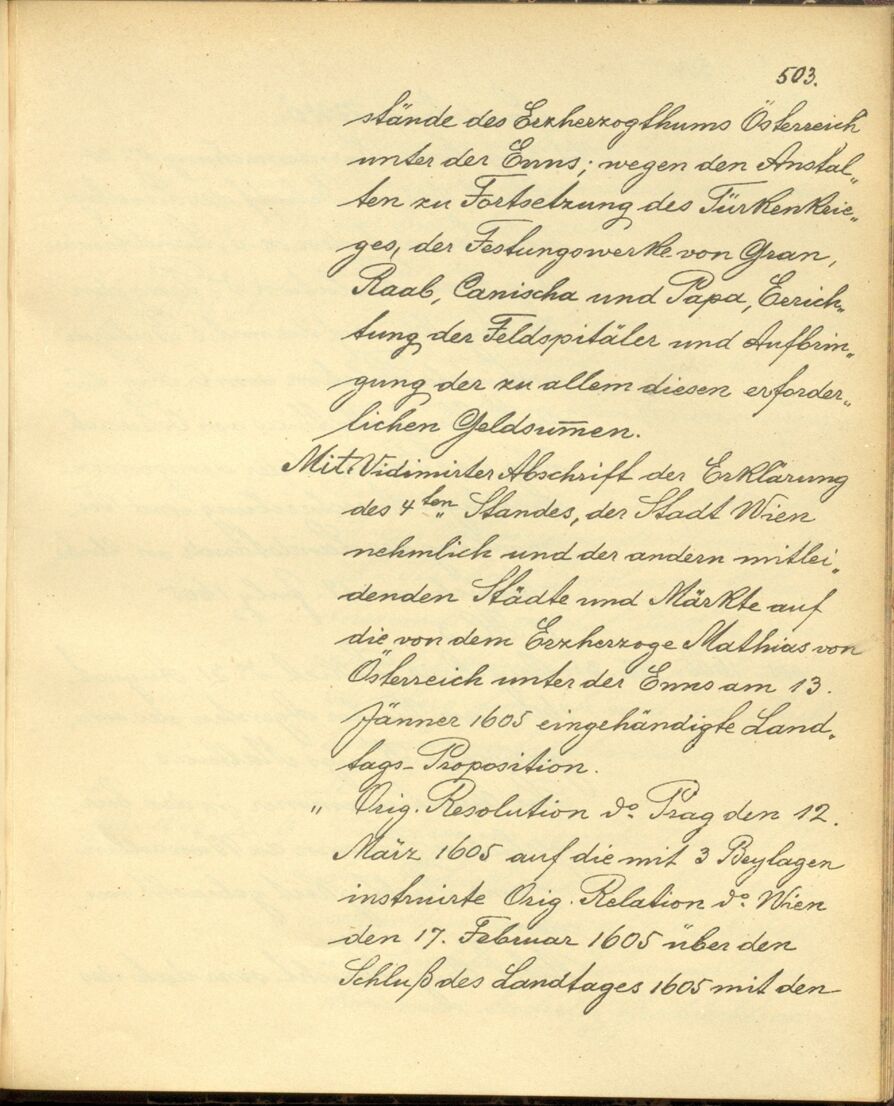 503.
stände des Erzherzogthums Österreich
unter der Enns; wegen den Anstal„
ten zu Fortsetzung des Türkenkrie„
ges, der Festungswerke von Gran,
Raab, Canischa und Papa, Errich„
tung der Feldspitäler und Aufbrin„
gung der zu allem diesen erforder„
lichen Geldsum̅en.
Mit Vidimirter Abschrift der Erklärung
des 4ten„ Standes, der Stadt Wien
nehmlich und der andern mitlei„
denden Städte und Märkte auf
die von dem Erzherzoge Mathias von
Österreich unter der Enns am 13.
Jänner 1605 eingehändigte Land„
tags-Proposition.
„ Orig. Resolution do. Prag den 12.
März 1605 auf die mit 3 Beylagen
instruirte Orig. Relation do. Wien
den 17. Februar 1605 über den
Schluß des Landtages 1605 mit den